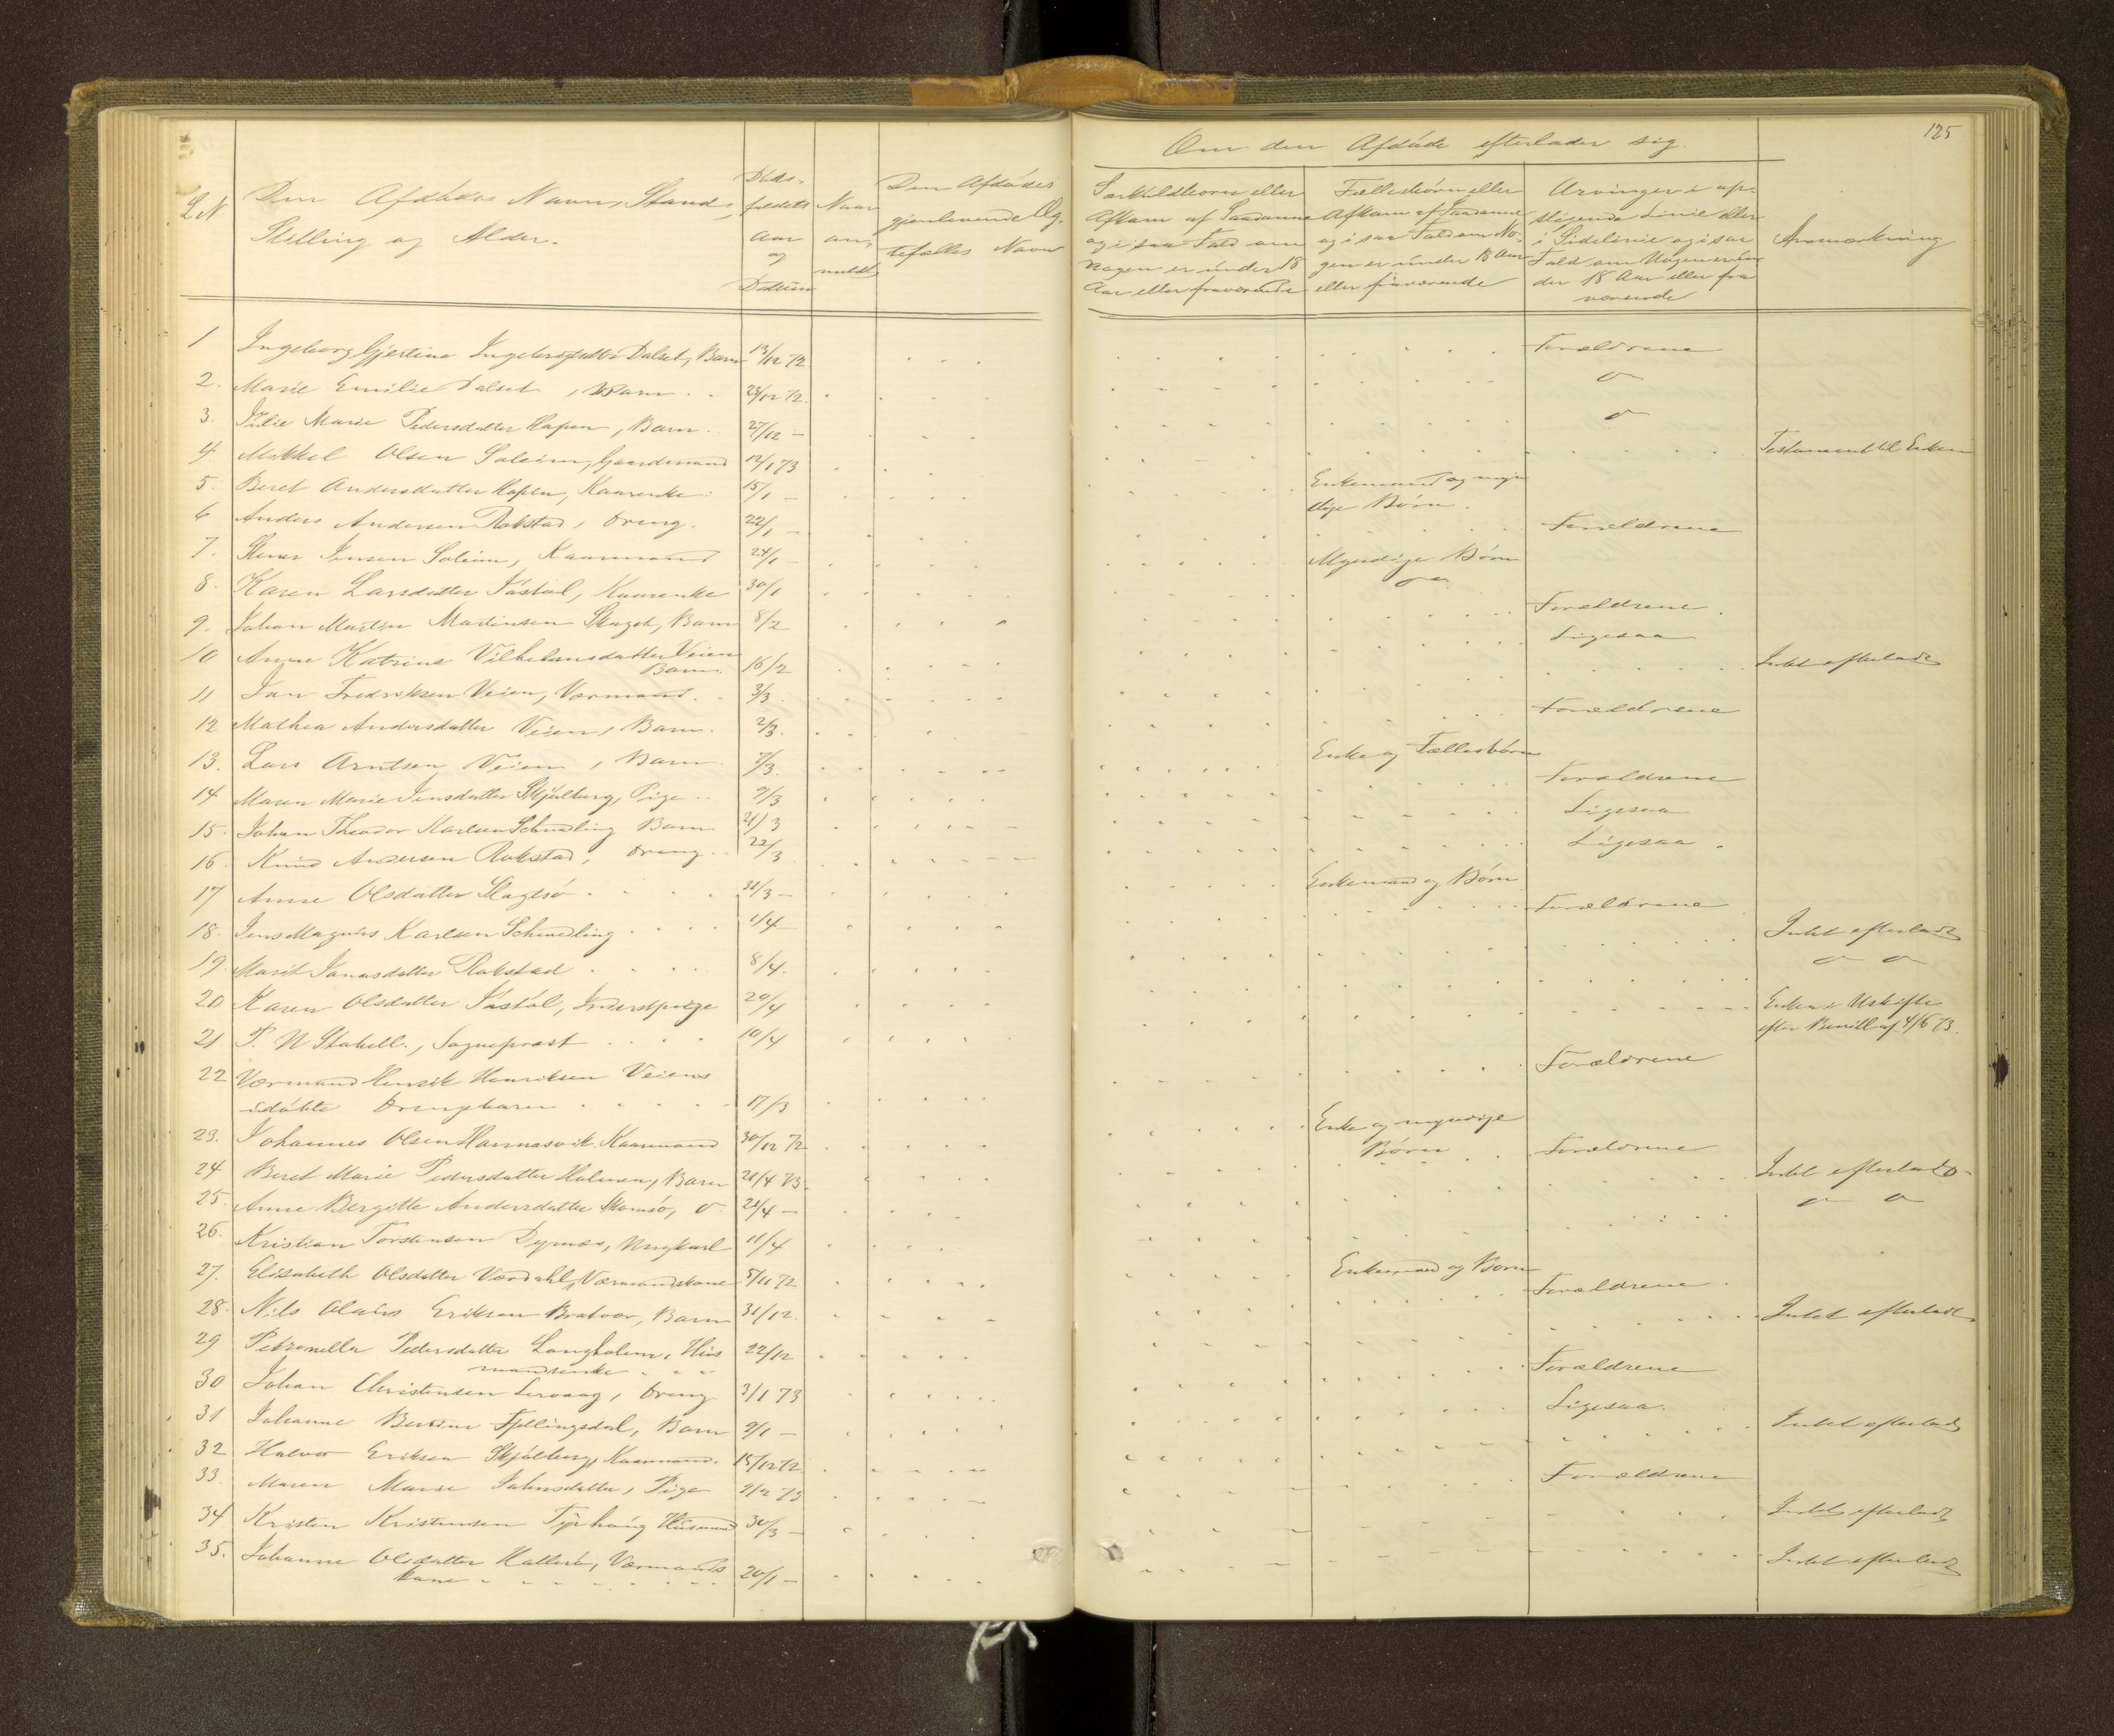 125
Om den Afdøde efterlader sig
LN
Den Afdødes Navn, Stand,
Stilling og Alder.
Døds-
faldets
Aar
og
Datum
Naar
an-
meldt
Den Afdødes
gjenlevende Æg-
tefælles Navn
Særkuldbørn eller
Afkom af Saadanne
og i saa Fald om
Nogen er under 18
Aar eller fraværende
Fællesbørn eller
Afkom af Saadanne
og i saa Fald om No-
gen er under 18 Aar
eller fraværende
Arvinger i op-
stigende Linie eller
i Sidelinie og i saa
Fald om Nogen er un-
der 18 Aar eller fra
værende
Anmærkning
1 Ingeborg Gjertine Ingebrigtsdatter Dalset, Barn 13/12 72 Forældrene
2. Marie Emilie Dalset, Barn 23/12 72. "
3. Julie Marie Pedersdatter Hapen, Barn. 27/12 — "
4. Mikkel Olsen Soleim, Gaardmand 12/1 73 Testament til Enken
5. Beret Andersdatter Hapen, Kaarenke 15/1 — Enkemand og myn
dige Børn.
6 Anders Andersen Rokstad, Dreng. 22/1 — Forældrene
7. Jensen Soleim, Kaarmand 24/1 — Myndige Børn
8. Karen Larsdatter Jøstøl, Kaarenke 30/1 " "
9. Johan Martin Martinsen Skaget, Barn 8/2 Forældrene.
10 Anne Katrine Vilhelmsdatter Veien
Barn. 16/2 Ligesaa
11 Jan Fredriksen Veien, Værmand. 3/3 Intet efterladt
12 Mathea Andersdatter Veien, Barn. 2/3. Forældrene
13. Lars Arntsen Veien, Barn 7/3. Enke og Fællesbørn
14 Maren Marie Jensdatter Skjølberg, Pige 9/3 Forældrene
15. Johan Theodor Karlsen Schmedling Barn 21/3 Ligesaa
16. Knud Andersen Rokstad, Dreng 22/3 Ligesaa.
17 Anne Olsdatter Slagsø 31/3 — Enkemand og Børn
18. Jens Magnus Karlsen Schmedling 1/4 Forældrene
19. Marit Jonasdatter Rokstad 8/4. Intet efterladt
20 Karen Olsdatter Jøstøl, Inderstpige 20/4 " "
21 P. N Stabell., Sogneprest 10/4 Enken i Uskifte
efter Bevill. af 4/6 73.
22 Værmand Henrik Henriksen Veiens
udøbte Drengebarn 17/3 Forældrene
23. Johannes Olsen Hamnesvik Kaarmand 30/12 72 Enke og myndige
Børn
24 Beret Marie Pedersdatter Holmen, Barn 21/4 73. Forældrene
25. Anne Bergitte Andersdatter Skomsø, " 21/4 — Intet efterladt
26. Kristian Torstensen Dyrnes, Ungkarl 11/4 " "
27. Elisabeth Olsdatter Værdahl, Værmandskone 5/11 72 Enkemand og Børn
28. Nils Olaus Eriksen Bratvær, Barn 31/12. Forældrene.
29 Petronelle Pedersdatter Langholmen, Hus
mandsenke 22/12 Intet efterladt
30 Johan Christensen Lervaag, Dreng 3/1 73 Forældrene
31 Johanne Berntine Fjellingsdal, Barn 9/1 — Ligesaa.
32 Halvor Eriksen Skjølberg, Kaarmand. 15/12 72 Intet efterladt
33. Maren Marie Johnsdatter, Pige 9/2 73 Forældrene
34 Kristen Kristensen Tyrhaug Husmand 30/3 — Intet efterladt
35. Johanne Olsdatter Hallerø, Værmands
kone 20/1 — Intet efterladt